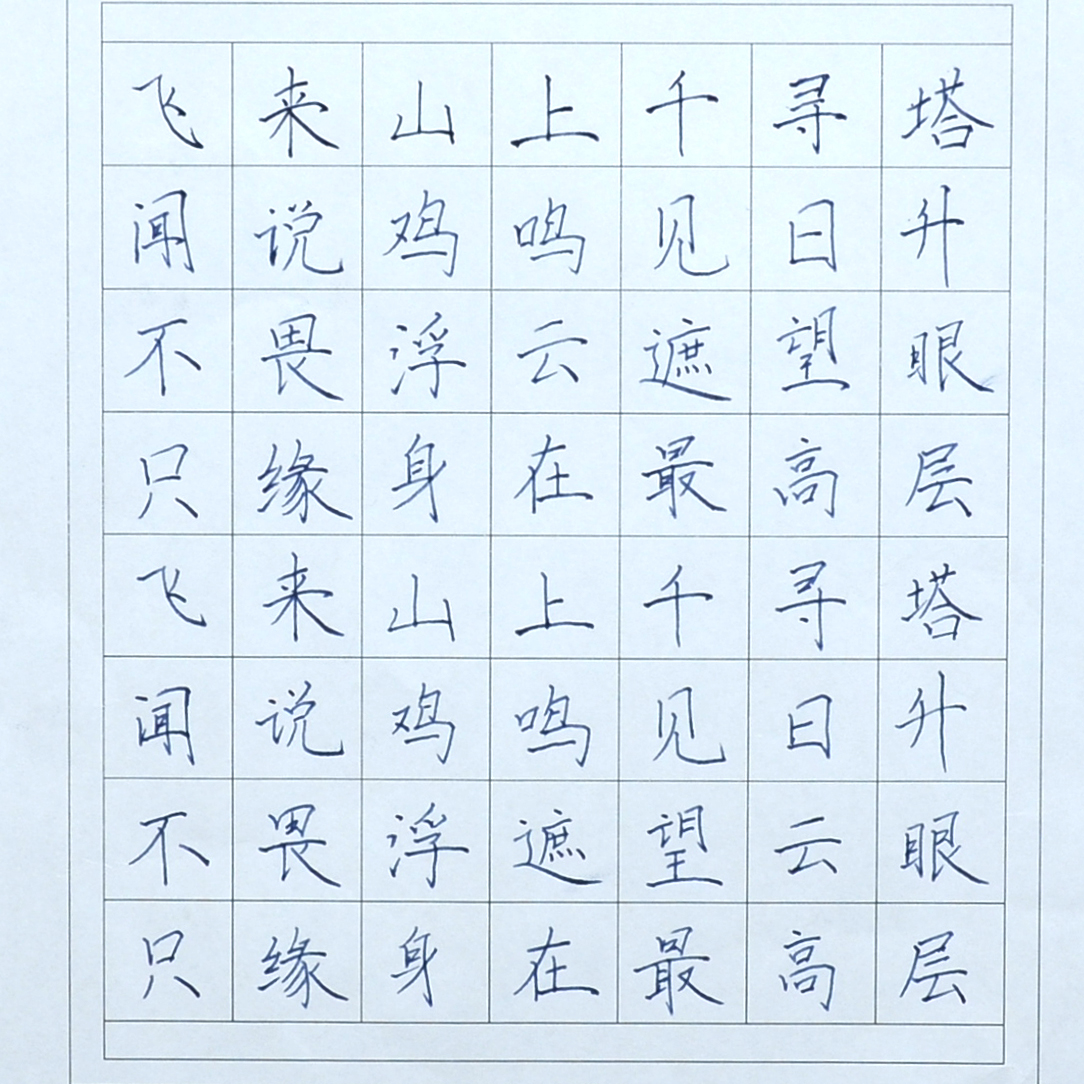 飞来山上千寻塔
闻说鸡鸣见日升
不畏浮云遮望眼
只缘身在最高层
飞来山上千寻塔
闻说鸡鸣见日升
不畏浮遮望云眼
只缘身在最高层